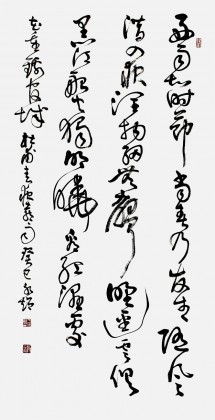 好雨知时節當春乃發生随風
潜入夜润物細無聲野逕雲俱
黑江船火獨明曉看紅濕處
花重錦官城 杜甫春夜喜雨 癸巳